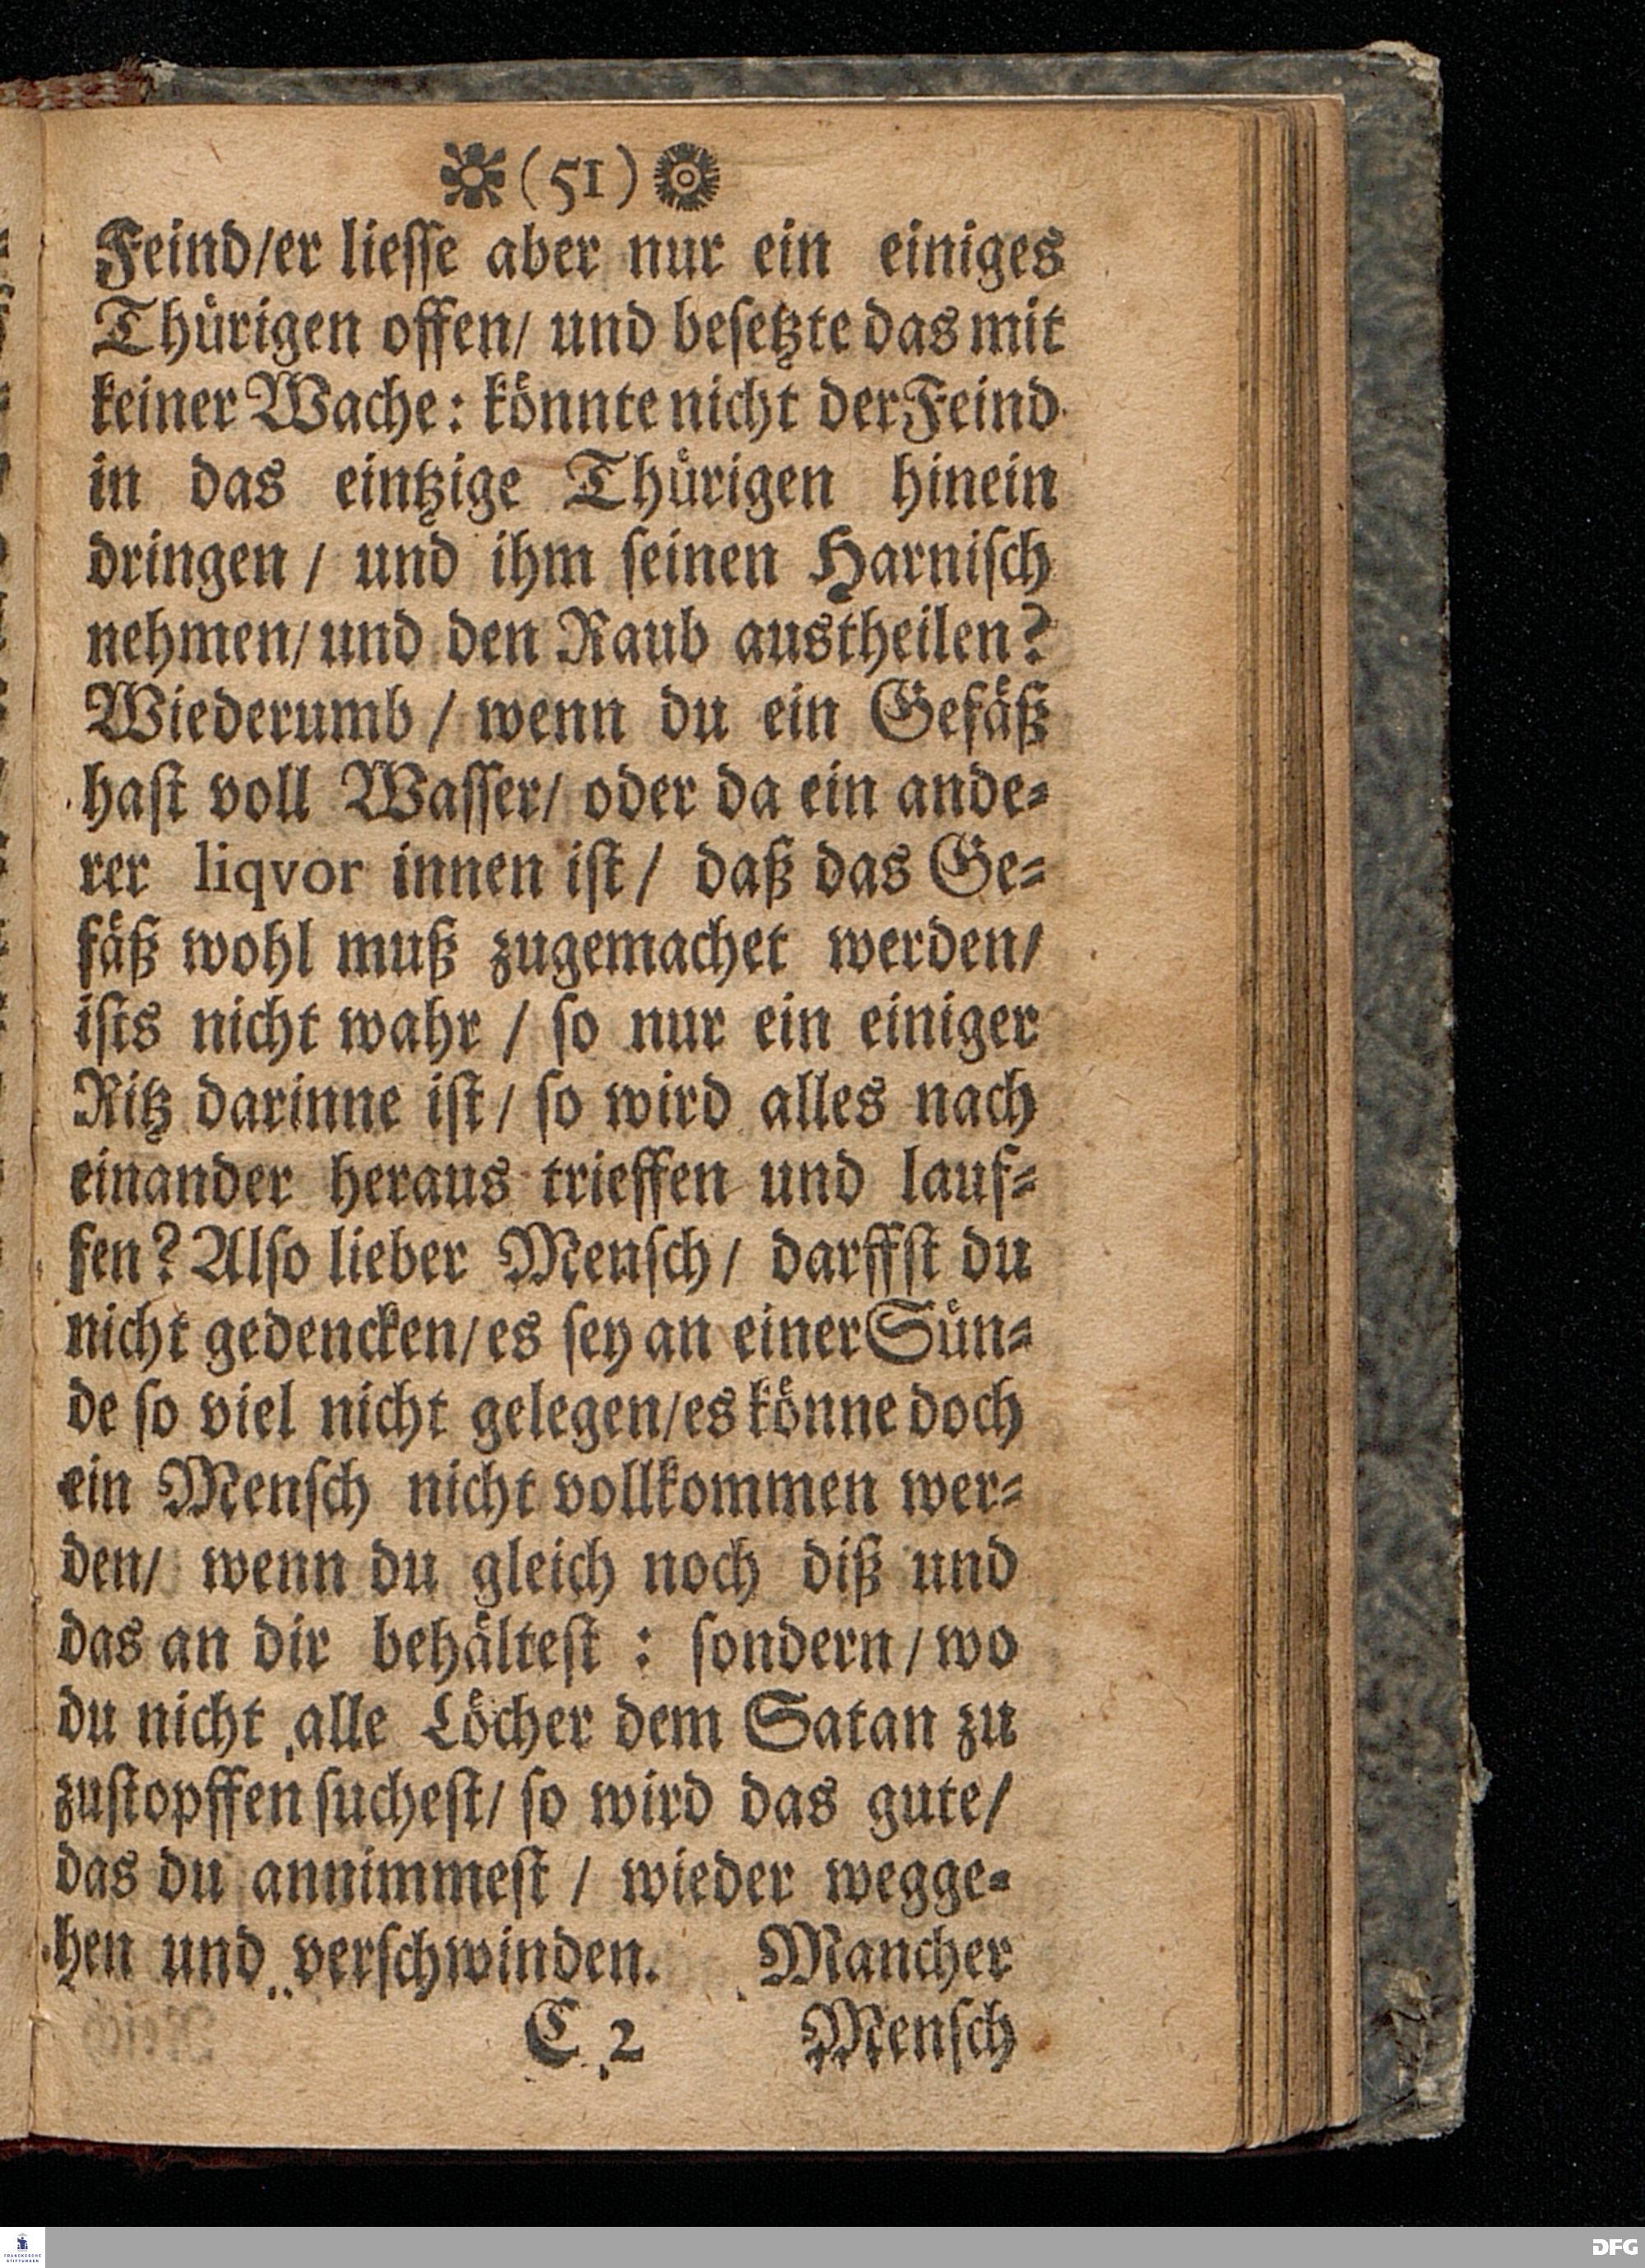 (51)
Feind/er lieſſe aber nur ein einiges
Thuͤrigen offen/ und beſetzte das mit
keiner Wache: koͤnnte nicht der Feind
in das eintzige Thuͤrigen hinein
dringen / und ihm ſeinen Harniſch
nehmen/und den Raub austheilen?
Wiederumb / wenn du ein Gefaͤß
haſt voll Waſſer/ oder da ein ande⸗
rer liqvor innen iſt / daß das Ge⸗
faͤß wohl muß zugemachet werden/
iſts nicht wahr / ſo nur ein einiger
Ritz darinne iſt / ſo wird alles nach
einander heraus trieffen und lauf⸗
fen? Alſo lieber Menſch / darffſt du
nicht gedencken/es ſey an einer Suͤn⸗
de ſo viel nicht gelegen/es koͤnne doch
ein Menſch nicht vollkommen wer⸗
den/ wenn du gleich noch diß und
das an dir behaͤlteſt : ſondern / wo
du nicht alle Loͤcher dem Satan zu
zuſtopffen ſucheſt/ ſo wird das gute/
das du annimmeſt / wieder wegge⸗
hen und verſchwinden. Mancher
C 2 Menſch
FRANCKESCHE
STIFTUNGEN
DFG